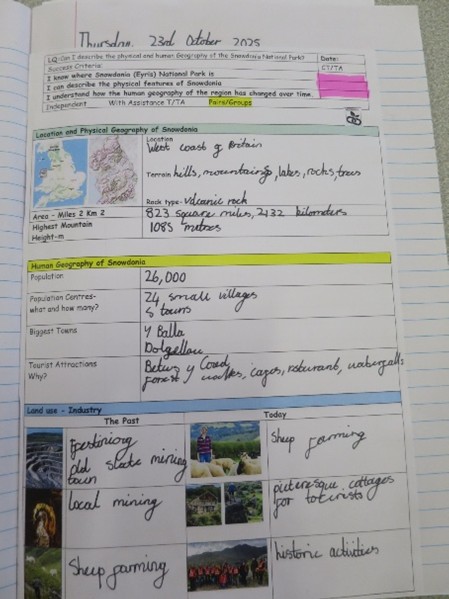 Thursday, 23rd October 2025
LQ: Can I describe the physical and human Geography of the Snowdonia National Park?
Date:
Success Criteria:
CT/TA
I know where Snowdonia (Eyris) National Park is
I can describe the physical features of Snowdonia
I understand how the human geography of the region has changed over time.
Independent With Assistance T/TA Pairs/Groups
Location and Physical Geography of Snowdonia
Location
West coast of Britain
Terrain hills, mountains, lakes, rocks, trees
Rock type- Volcanic rock
Area - Miles 2 Km 2
823 square miles, 2132 kilometers
Highest Mountain
Height-m
1085 metres
Human Geography of Snowdonia
Population
26,000
Population Centres-
what and how many?
24 small villages
5 towns
Biggest Towns
Y Balla
Dolgellau
Tourist Attractions
Why?
Betws y Coed
forest walks, cafes,
Land use - Industry
The Past
Today
old slate mining
town
Sheep farming
local mining
picturesque cottages
for tourists
Sheep farming
historic activities